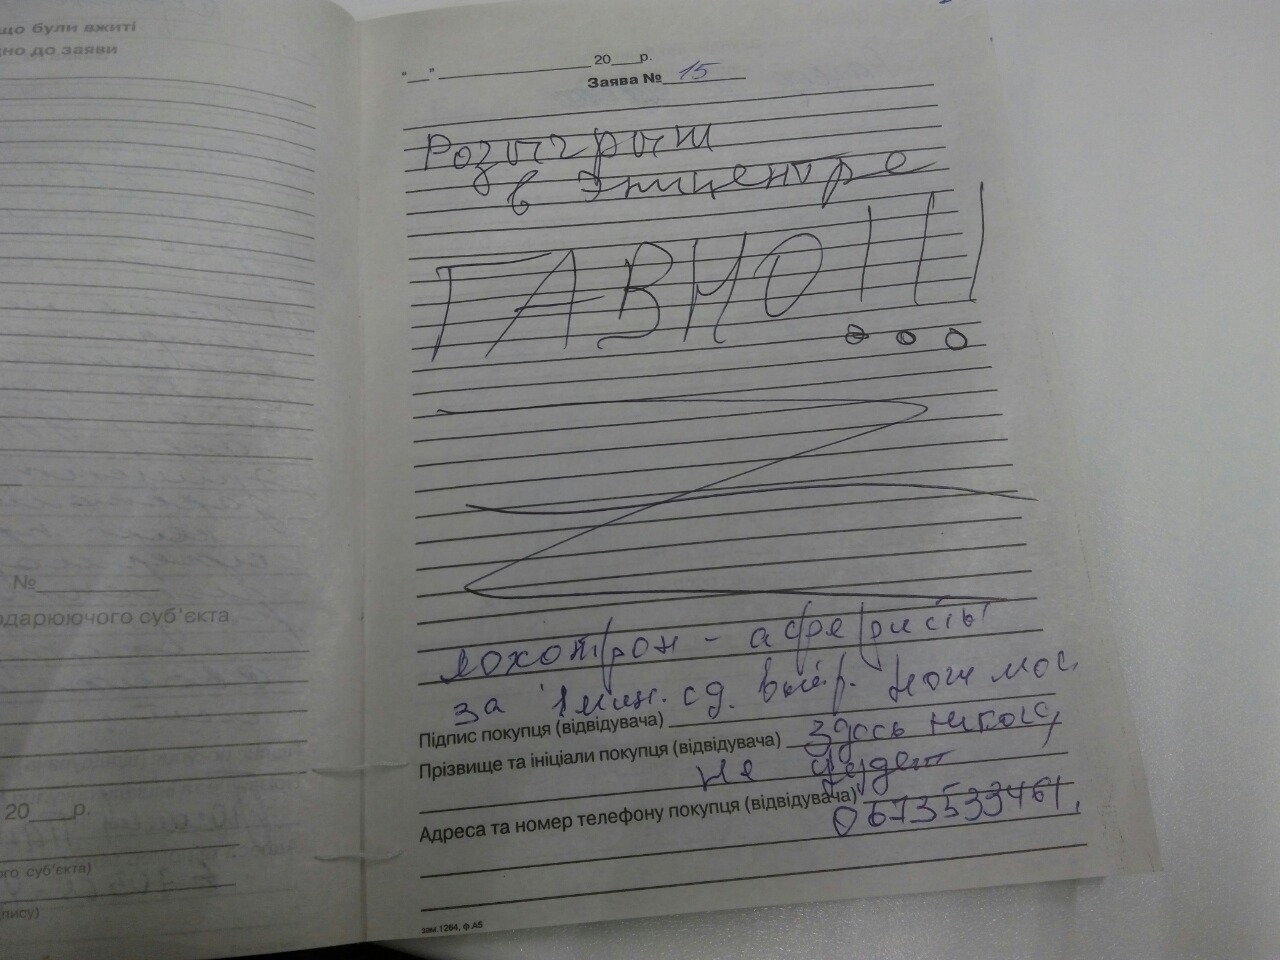 що були вжиті
но до заяви
№
одарюючого суб'єкта
20 р.
ого суб'єкта)
пису)
" " 20 р.
Заява № 15
Розыгрыш
в Эпицентре
ГАВНО!!!
лохотрон - аферисты
за 1 мин. сд. ноги моей
Підпис покупця (відвідувача)
здесь никогда
Прізвище та ініціали покупця (відвідувача)
не будет
Адреса та номер телефону покупця (відвідувача)
0673533461
зам.1264, ф.А5